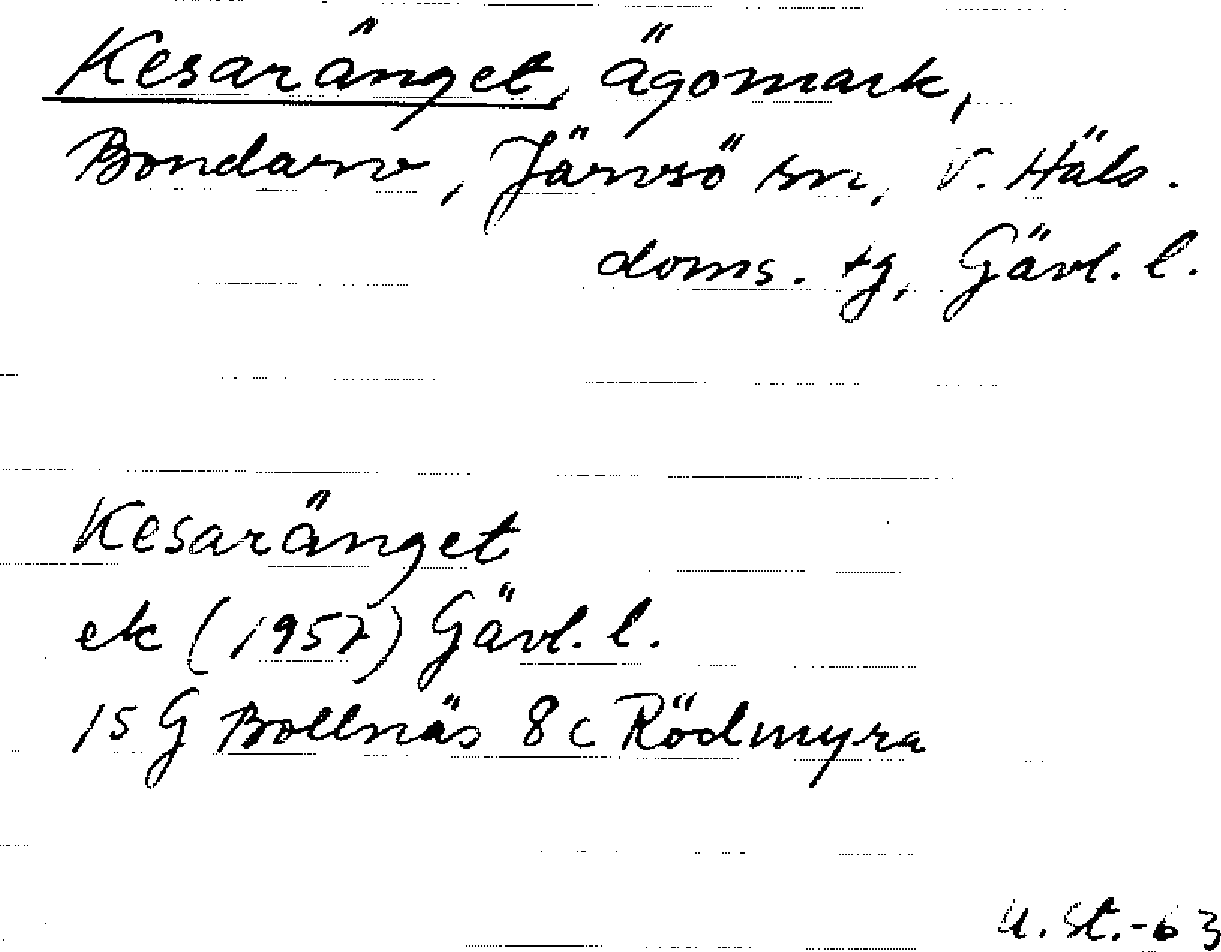 Kesaränget, ägomark,
Bondarv, Järvsö sn, V. Häls.
doms. tg, Gävl. l.
Kesaränget
ek (1957) Gävl. l.
15 G Bollnäs 8 c Rödmyra
U. St.-63